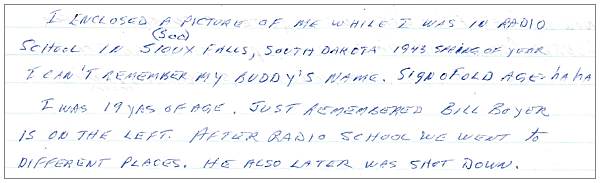 I ENCLOSED A PICTURE OF ME WHILE I WAS IN RADIO
(SOO)
SCHOOL IN SIOUX FALLS, SOUTH DAKOTA 1943 SPRING OF YEAR
I CAN'T REMEMBER MY BUDDY'S NAME. SIGN OF OLD AGE - ha ha
I WAS 19 YRS OF AGE. JUST REMEMBERED BILL BOYER
IS ON THE LEFT. AFTER RADIO SCHOOL WE WENT to
DIFFERENT PLACES. HE ALSO LATER WAS SHOT DOWN.